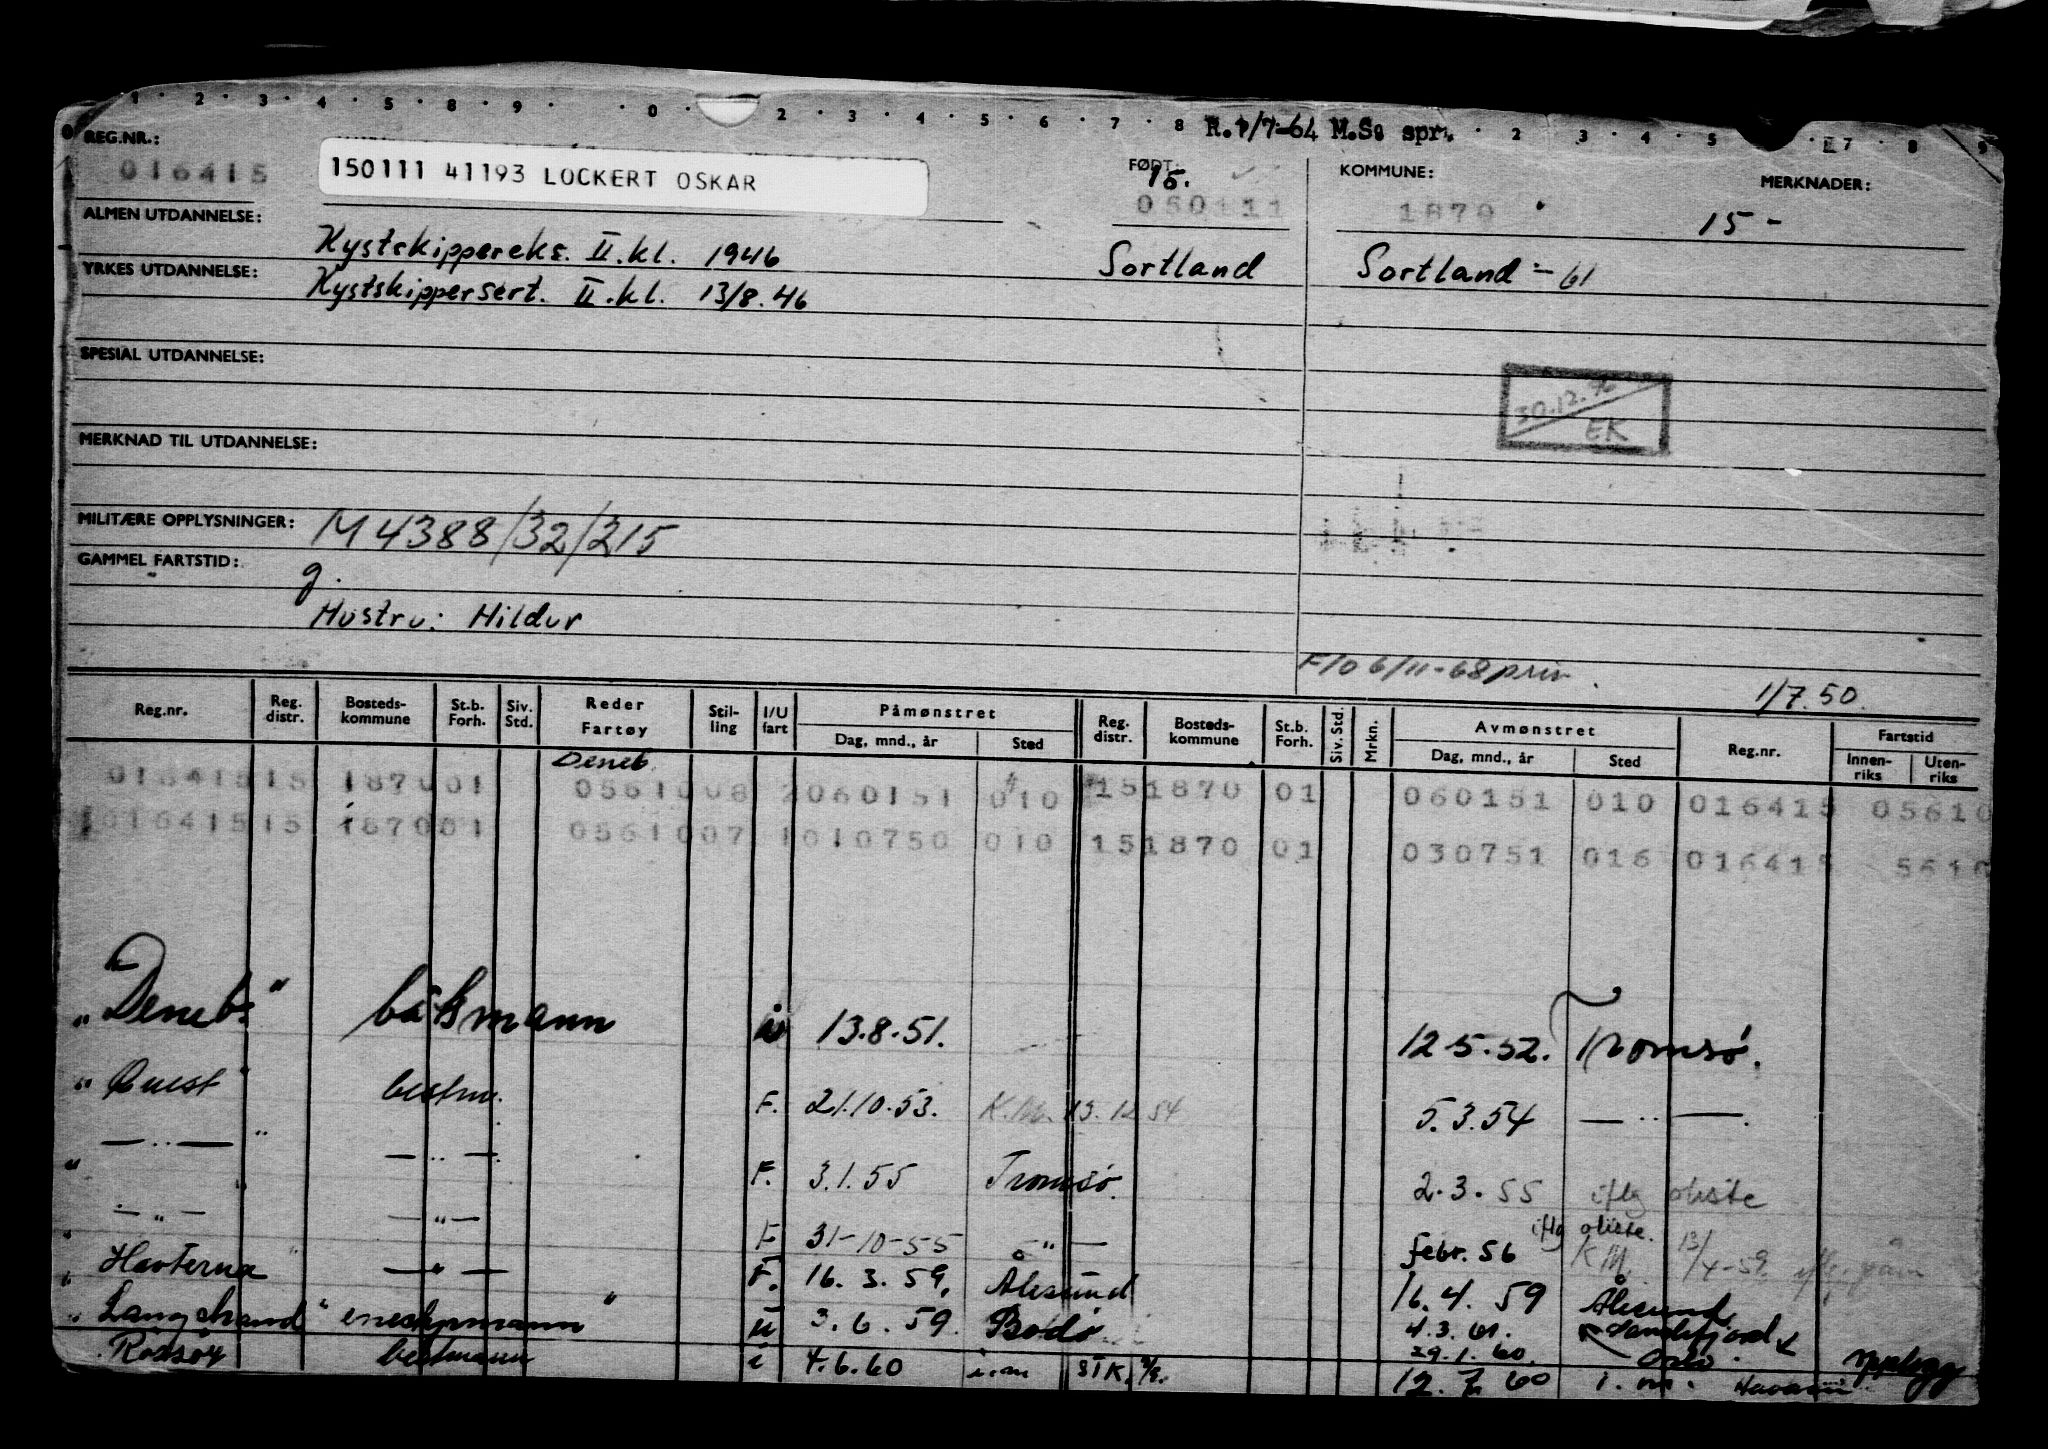 1 2 3 4 5 8 9 0 2 3 4 5 6 7 8 R.1/7-64 M.S. spr. 2 3 4 5 7 8 9
REG.NR.: 016415 150111 41193 LOCKERT OSKAR FØDT: 15. 050111 KOMMUNE: 1870 MERKNADER: 15-
ALMEN UTDANNELSE: Kystskippereks. II.kl. 1946 Sortland Sortland - 61
YRKES UTDANNELSE: Kystskippersert. II.kl. 13/8.46
SPESIAL UTDANNELSE:
30.12.76
EK
MERKNAD TIL UTDANNELSE:
MILITÆRE OPPLYSNINGER: M 4388/32/215
GAMMEL FARTSTID: g.
Hustru: Hildur
F/O 6/11-68 priv
1/7.50.
Reg.nr. Reg. distr. Bosteds-kommune St.b. Forh. Siv. Std. Reder Fartøy Stil-ling I/U fart Påmønstret Dag, mnd., år Sted Reg. distr. Bosteds-kommune St.b. Forh. Siv. Std. Mrkn. Avmønstret Dag, mnd., år Sted Reg.nr. Fartstid Innen-riks Uten-riks
Deneb
016415 15 1870 01 0561008 2 060151 010 15 1870 01 060151 010 016415 05610
016415 15 1870 01 0561007 1 010750 010 15 1870 01 030751 016 016415 5610
"Deneb" båtsmann i 13.8.51. 12.5.52. Tromsø.
"Quest" bestm. F. 21.10.53. K.M. 13.12.54 5.3.54 — .. —
— .. — " — .. — F. 3.1.55 Tromsø. 2.3.55 iflg oliste
" — " — — " — F 31-10-55 — " — febr. 56 iflg oliste. K.M. 13/4-59
" Havterna " — " — F. 16.3.59. Ålesund 16.4.59 Ålesund
" Langstrand " eneskymann " u 3.6.59. Bodö 4.3.61. Sandefjord
29.1.60. Oslo. Opplegg
Rössöy bestmann i 4.6.60 i.m STK. 12.7.60 i.m. Havari